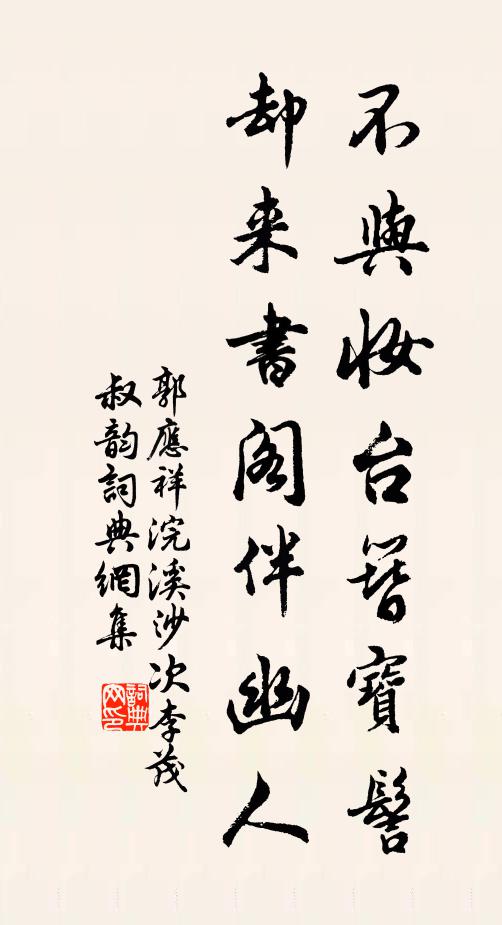 不與妝台簪寶髻
却来書閣伴幽人
郭應祥浣溪沙次李茂
叔韵詞典網集
詞典网印